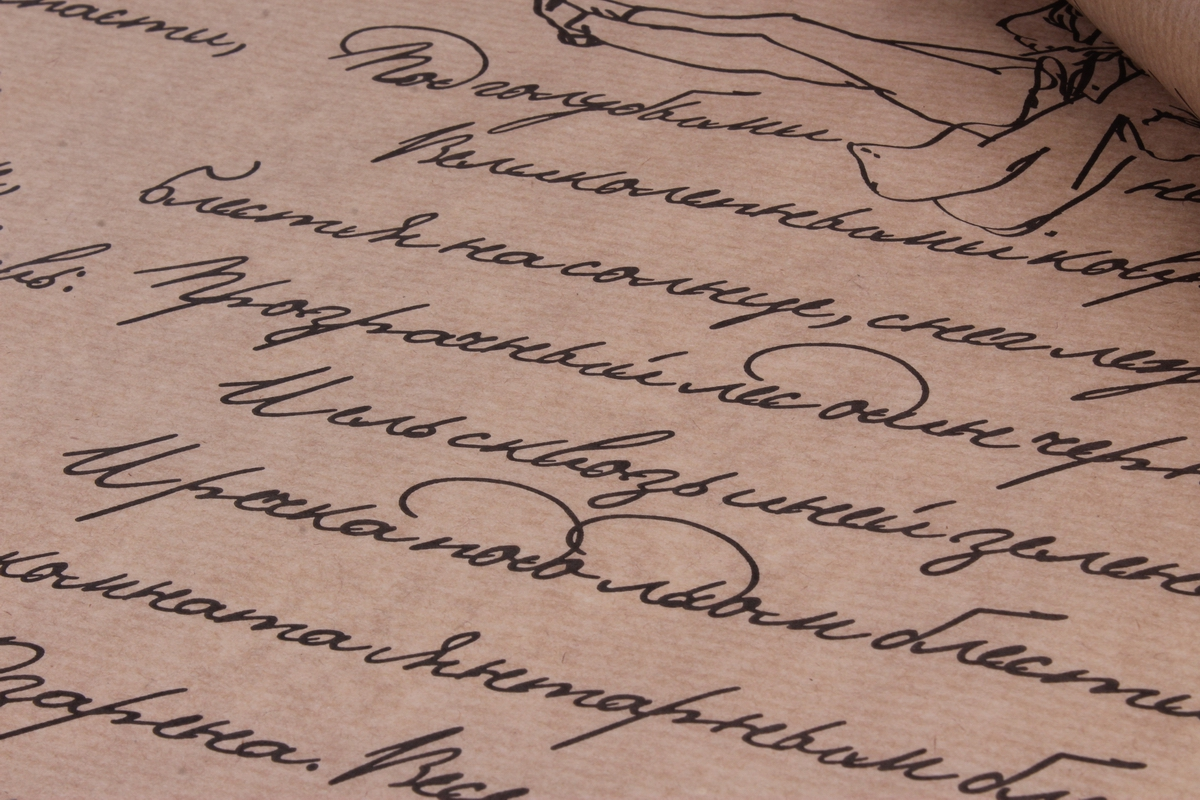 Под голубыми
Великолепными ковр
Блестя на солнце, снег леж
Прозрачный лес один черн
И ель сквозь иней зелене
И речка подо льдом блести
комната янтарным бл
Озарена. Весе